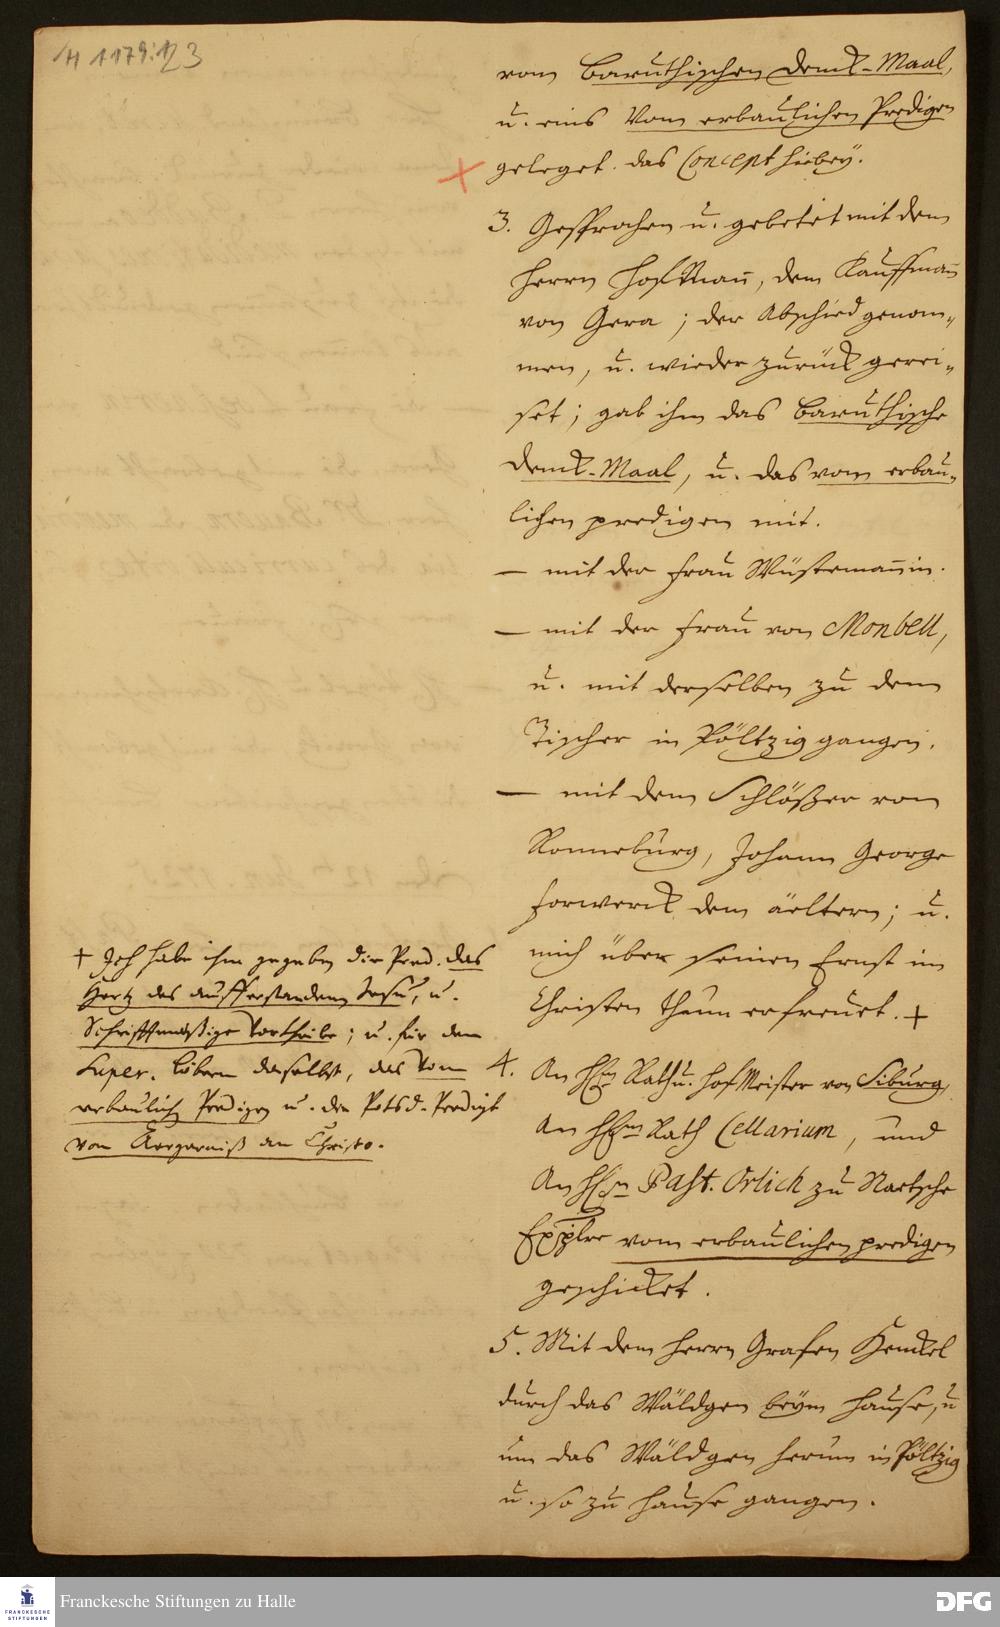 H 1179:123
vom Baruthischen Denck-Maal,
u. eins Vom erbaulichen Predigen
geleget. das Concept hiebey.
3. Gesprochen u. gebetet mit dem
Herrn Hofmañ, dem Kauffmañ
von Gera; der Abschied genom-
men, u. wieder zurück gerei-
set; gab ihm das Baruthische
Denck-Maal, u. das vom erbau-
lichen predigen mit.
— mit der Frau Wüstemannin.
— mit der Frau von Monbell,
u. mit derselben zu dem
Tischer in Pöltzig gangen.
— mit dem Schlößer von
Ronneburg, Johann George
Forwerck dem äeltern; u.
mich über seinen Ernst im
Christen thum erfreuet. +
+ Ich habe ihm gegeben die Pred. das
Hertz des aufferstandenen Jesu, u.
Schrifftmäßige Vortheile; u. für den
Super. Löbern daselbst, das Vom
erbaulich Predigen u. die Potsd. Predigt
von Aergerniß an Christo.
4. An H. Rath u. HofMeister von Siburg,
An H. Rath Cellarium, und
An H. Past. Orlich zu Naetsche
Exempl. vom erbaulichen predigen
geschicket.
5. Mit dem Herrn Grafen Henckel
durch das Wäldgen beym Hause, u
um das Wäldgen herum in Pöltzig
u. so zu Hause gangen.
FRANCKESCHE
STIFTUNGEN
Franckesche Stiftungen zu Halle
DFG